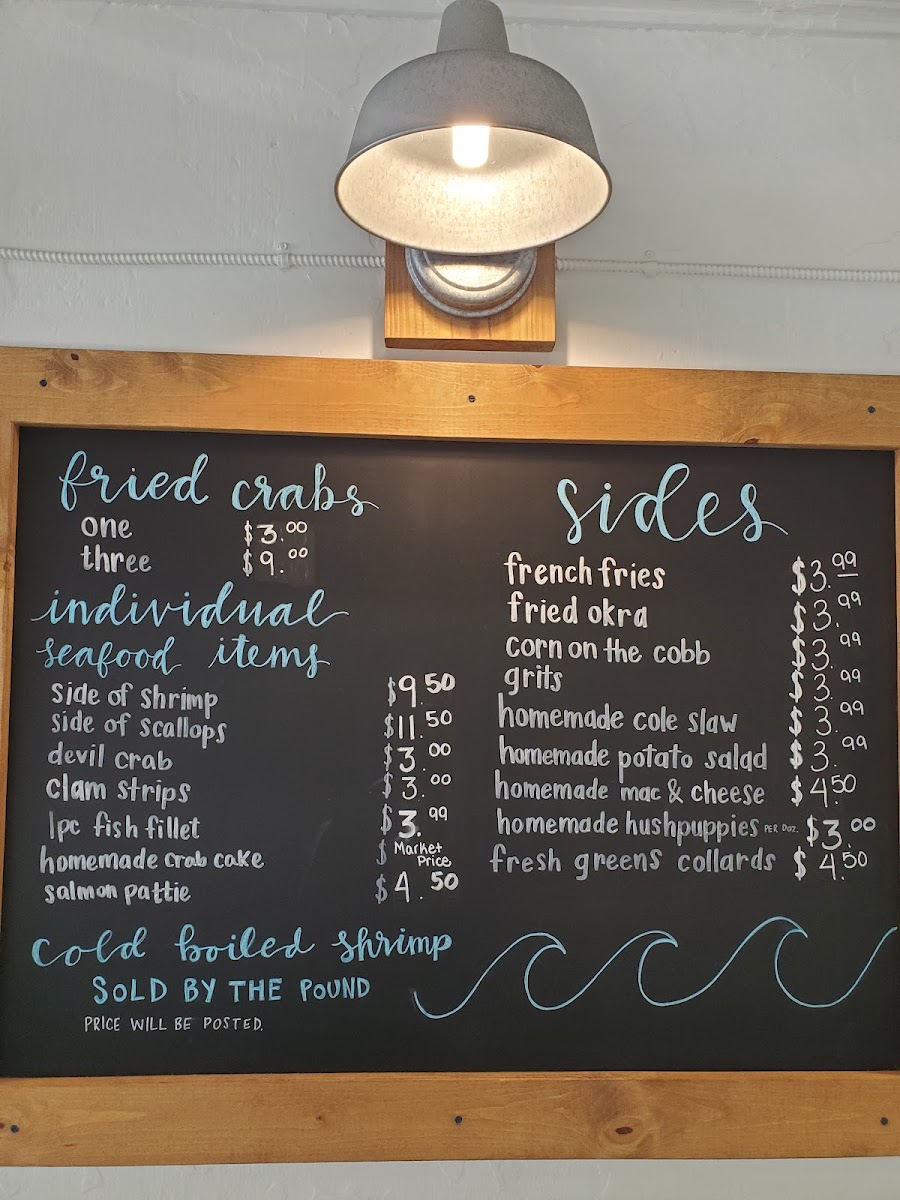 fried crabs
one $3.00
three $9.00
individual
seafood items
side of shrimp $9.50
side of scallops $11.50
devil crab $3.00
clam strips $3.00
1pc fish fillet $3.99
homemade crab cake $ Market Price
salmon pattie $4.50
cold boiled shrimp
SOLD BY THE POUND
PRICE WILL BE POSTED.
sides
french fries $3.99
fried okra $3.99
corn on the cobb $3.99
grits $3.99
homemade cole slaw $3.99
homemade potato salad $3.99
homemade mac & cheese $4.50
homemade hushpuppies PER DOZ. $3.00
fresh greens collards $4.50